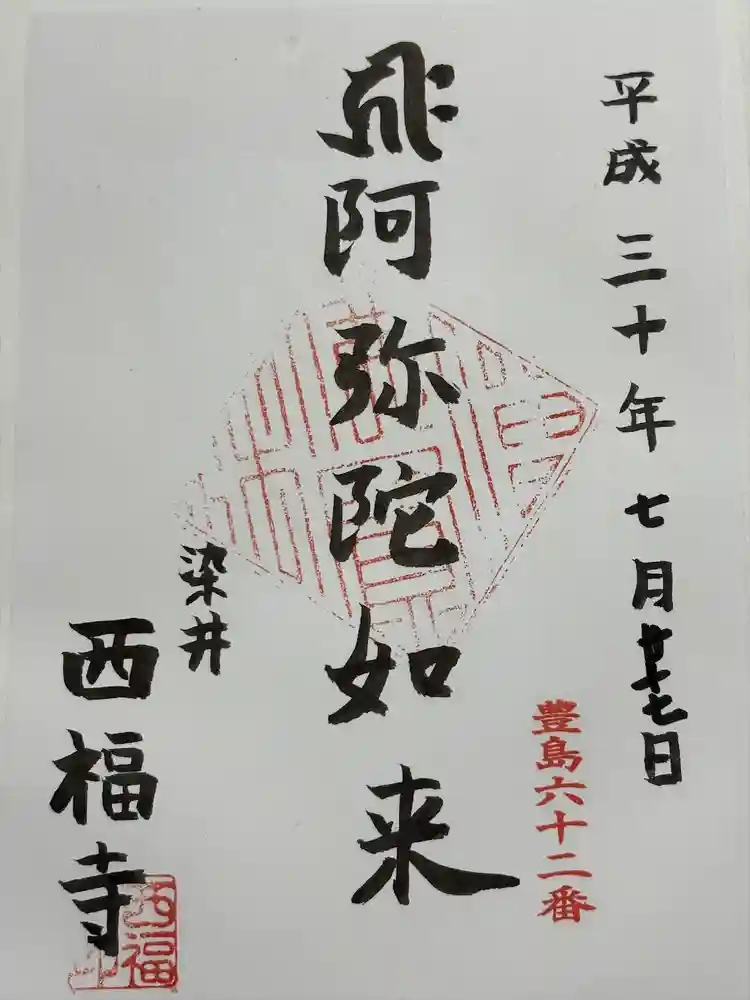 平成三十年七月廿七日
豊島六十二番
𑖮𑖿𑖨𑖱𑖾阿弥陀如来
染井
西福寺
西福寺